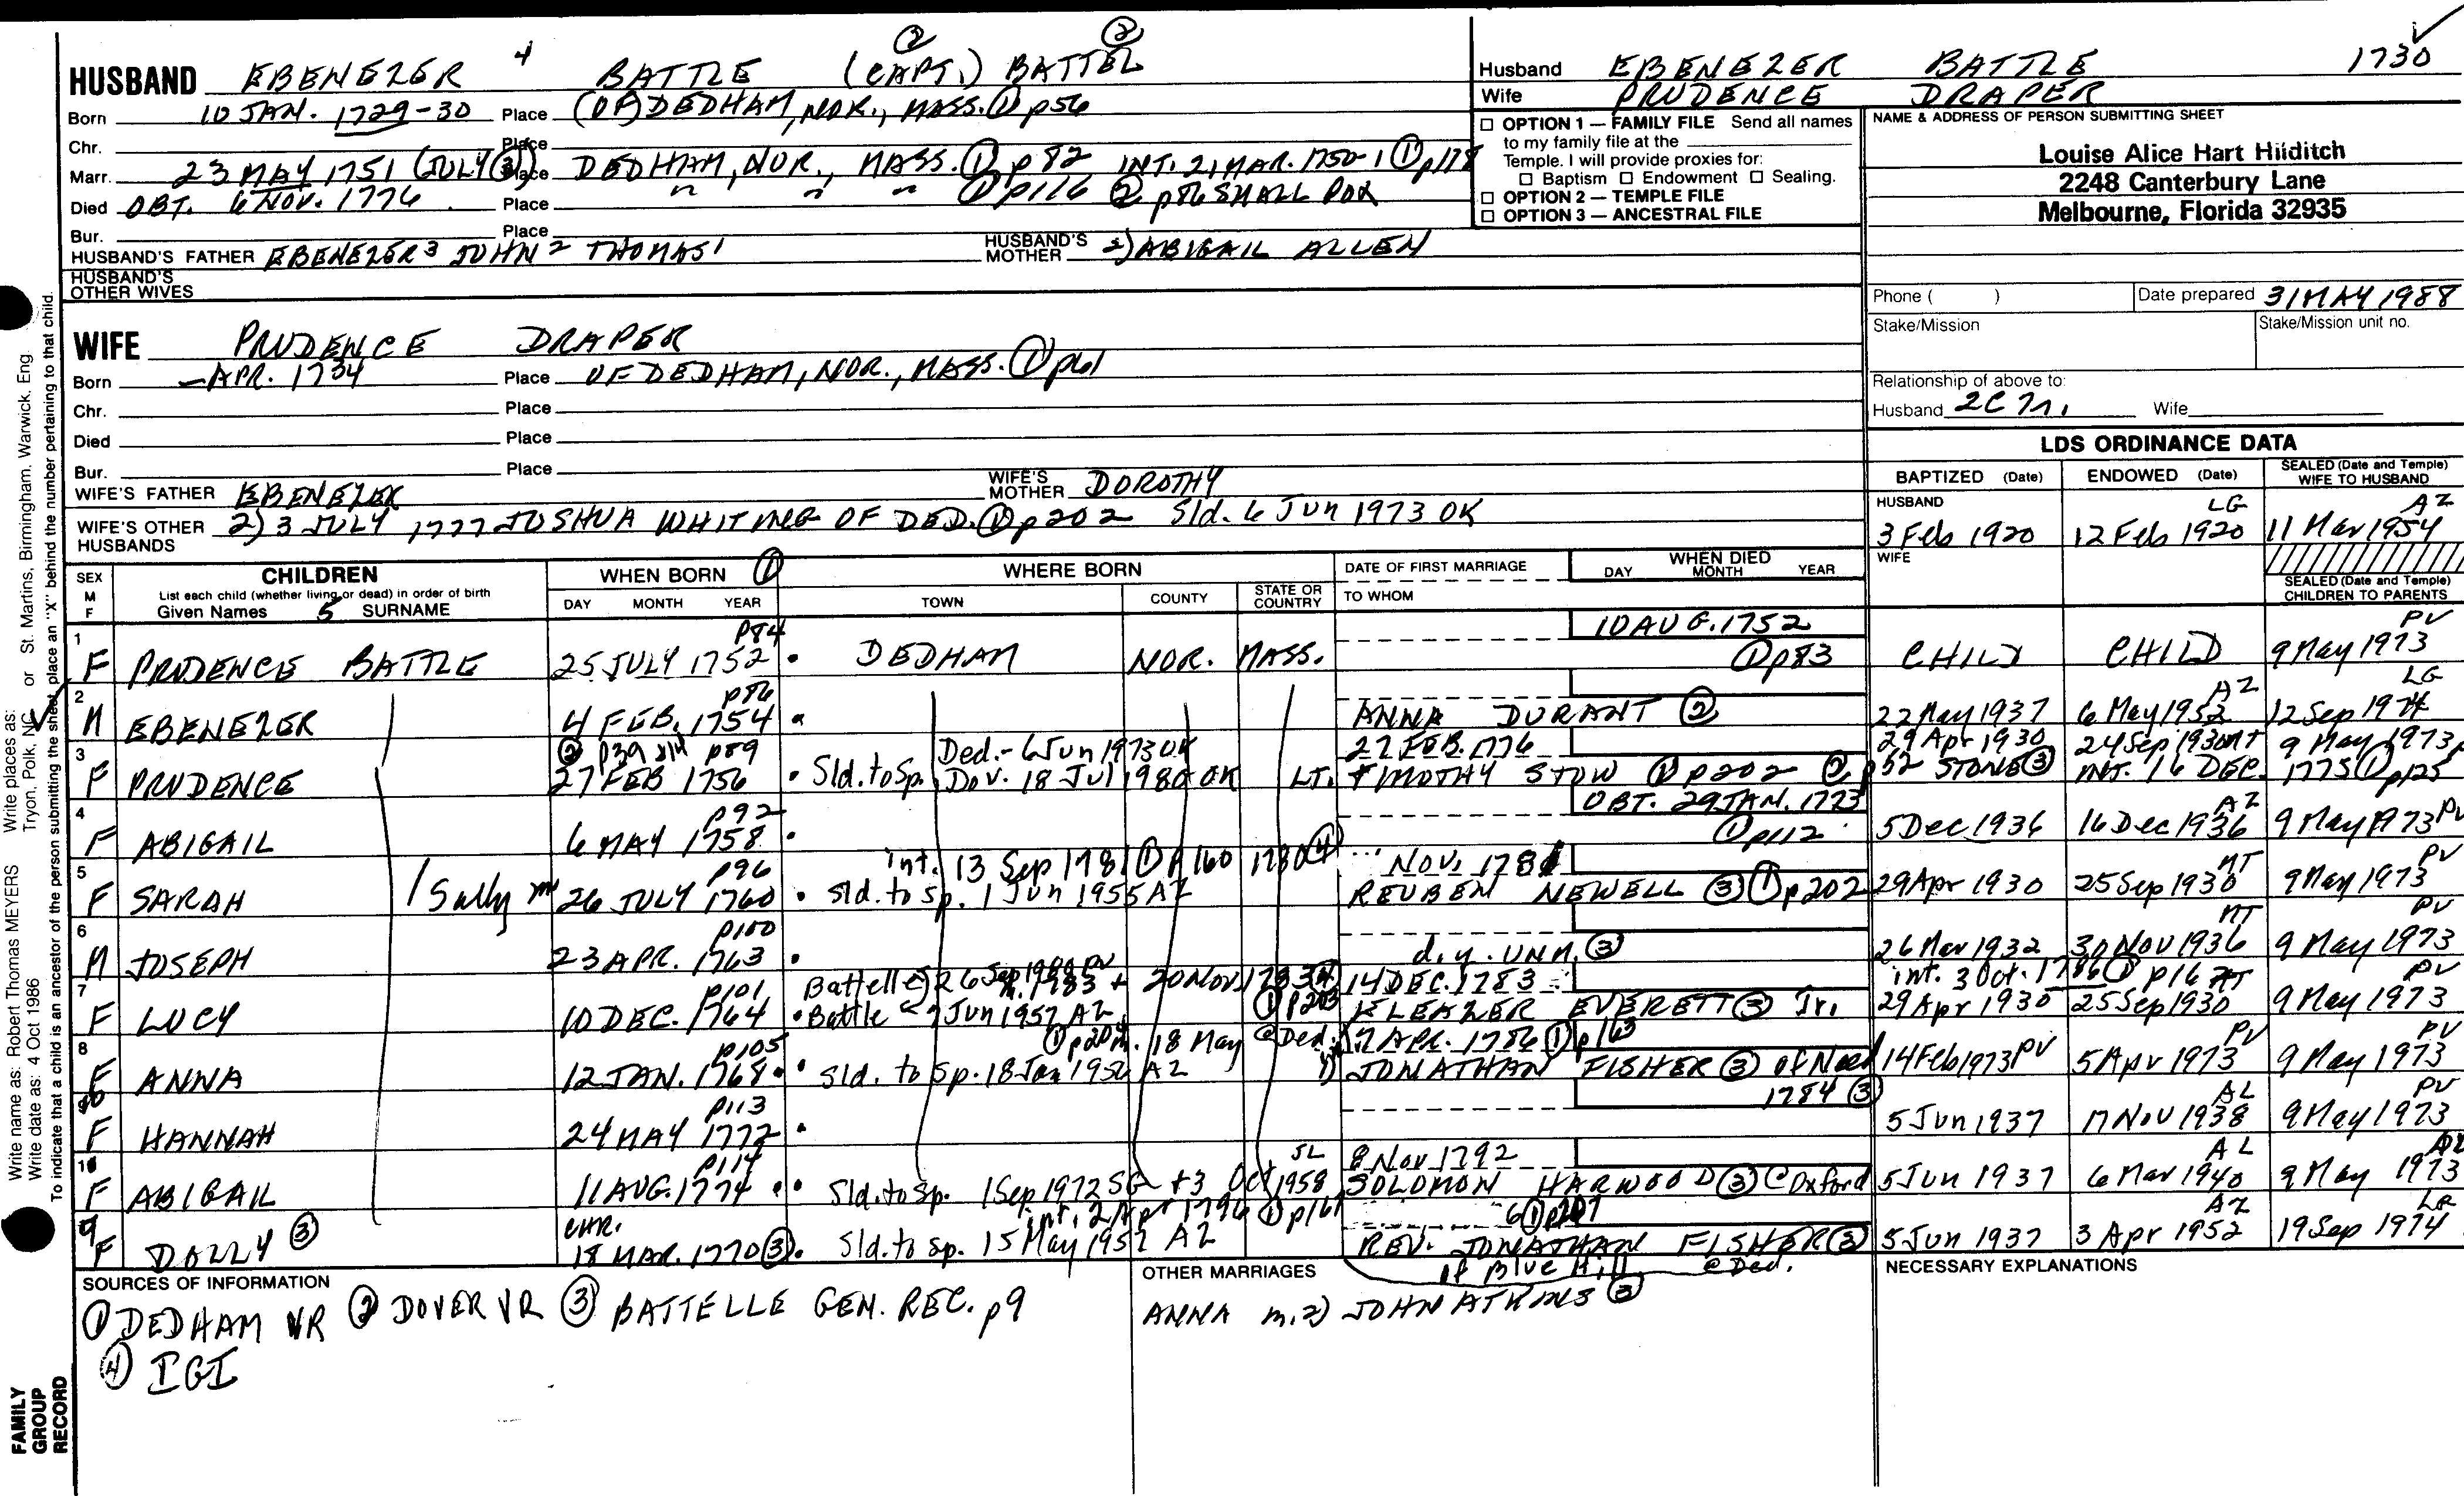 HUSBAND EBENEZER 4 BATTLE (CAPT.) ② BATTEL ②
Born 10 JAN. 1729-30 Place (OF) DEDHAM, NOR., MASS. ① p56
Chr. Place
Marr. 23 MAY 1751 (JULY ③) Place DEDHAM, NOR., MASS. ① p82 INT. 21 MAR. 1750-1 ① p178
Died OBT. 6 NOV. 1776 Place " " " ① p116 ② p86 SMALL POX
Bur. Place
HUSBAND'S FATHER EBENEZER 3 JOHN 2 THOMAS 1 HUSBAND'S MOTHER 2) ABIGAIL ALLEN
HUSBAND'S OTHER WIVES
WIFE PRUDENCE DRAPER
Born — APR. 1734 Place OF DEDHAM, NOR., MASS. ① p61
Chr. Place
Died Place
Bur. Place
WIFE'S FATHER EBENEZER WIFE'S MOTHER DOROTHY
WIFE'S OTHER HUSBANDS 2) 3 JULY 1777 JOSHUA WHITING OF DED. ① p202 Sld. 6 Jun 1973 OK
Husband EBENEZER BATTLE 1730
Wife PRUDENCE DRAPER
☐ OPTION 1 — FAMILY FILE Send all names
to my family file at the
Temple. I will provide proxies for:
☐ Baptism ☐ Endowment ☐ Sealing.
☐ OPTION 2 — TEMPLE FILE
☐ OPTION 3 — ANCESTRAL FILE
NAME & ADDRESS OF PERSON SUBMITTING SHEET
Louise Alice Hart Hilditch
2248 Canterbury Lane
Melbourne, Florida 32935
Phone ( ) Date prepared 31 MAY 1988
Stake/Mission Stake/Mission unit no.
Relationship of above to:
Husband 2C 7r. Wife
LDS ORDINANCE DATA
BAPTIZED (Date) ENDOWED (Date) SEALED (Date and Temple) WIFE TO HUSBAND
HUSBAND LG AZ
3 Feb 1920 12 Feb 1920 11 Mar 1954
WIFE
SEALED (Date and Temple) CHILDREN TO PARENTS
SEX M F CHILDREN WHEN BORN ① WHERE BORN DATE OF FIRST MARRIAGE WHEN DIED
List each child (whether living or dead) in order of birth DAY MONTH YEAR
Given Names 5 SURNAME DAY MONTH YEAR TOWN COUNTY STATE OR COUNTRY TO WHOM
p84 10 AUG. 1752 PV
1 F PRUDENCE BATTLE 25 JULY 1752 • DEDHAM NOR. MASS. ① p83 CHILD CHILD 9 May 1973
p86 AZ LG
2 M EBENEZER 4 FEB. 1754 • ANNA DURANT ② 22 May 1937 6 May 1952 12 Sep 1974
② p39 p89 Ded.- 6 Jun 1973 OK 27 FEB. 1776 29 Apr 1930 24 Sep 1930 9 May 1973
3 F PRUDENCE 27 FEB 1756 • Sld. to Sp. Dov. 18 Jul 1980 OK LT. TIMOTHY STOW ① p202 ② p52 STONE ③ INT. 16 DEC. 1775 ① p125
p92 OBT. 29 JAN. 1773 AZ PV
4 F ABIGAIL 6 MAY 1758 • ① p112 5 Dec 1936 16 Dec 1936 9 May 1973
p96 int. 13 Sep 1781 ① p160 1780 ④ NOV. 1781 MT PV
5 F SARAH / Sally 26 JULY 1760 • Sld. to Sp. 1 Jun 1955 AZ REUBEN NEWELL ③ ① p202 29 Apr 1930 25 Sep 1930 9 May 1973
p100 MT PV
6 M JOSEPH 23 APR. 1763 • d.y. UNM. ③ 26 Mar 1932 30 Nov 1936 9 May 1973
p101 Battelle 20 Nov 1783 ④ 14 DEC. 1783 int. 3 Oct. 1786 ① p16 PV
7 F LUCY 10 DEC. 1764 • Battle 7 Jun 1957 AZ ① p203 ELEAZER EVERETT ③ Jr. 29 Apr 1930 25 Sep 1930 9 May 1973
p105 ① p204 m. 18 May @ Ded. 17 APR. 1786 ① p163 PV PV
8 F ANNA 12 JAN. 1768 • Sld. to Sp. 18 Jan 1956 AZ 1) JONATHAN FISHER ③ of Need 14 Feb 1973 PV 5 Apr 1973 9 May 1973
p113 1784 ③ AL PV
10 F HANNAH 24 MAY 1772 • 5 Jun 1937 17 Nov 1938 9 May 1973
p114 SL 8 Nov 1792 AL
11 F ABIGAIL 11 AUG. 1774 • Sld. to Sp. 1 Sep 1972 SG + 3 Oct 1958 SOLOMON HARWOOD ③ @ Oxford 5 Jun 1937 6 Mar 1940 9 May 1973
CHR. int. 2 Apr 1796 ① p161 ① p207 AZ
9 F DOLLY ③ 18 MAR. 1770 ③ • Sld. to Sp. 15 May 1952 AZ REV. JONATHAN FISHER ③ 5 Jun 1937 3 Apr 1952 19 Sep 1974
of Blue Hill @ Ded.
SOURCES OF INFORMATION OTHER MARRIAGES NECESSARY EXPLANATIONS
① DEDHAM VR ② DOVER VR ③ BATTELLE GEN. REC. p9 ANNA m. 2) JOHN ATKINS ③
④ IGI
Write name as: Robert Thomas MEYERS Write places as: Tryon, Polk, NC or St. Martins, Birmingham, Warwick. Eng.
Write date as: 4 Oct 1986
To indicate that a child is an ancestor of the person submitting the sheet, place an "X" behind the number pertaining to that child.
FAMILY GROUP RECORD